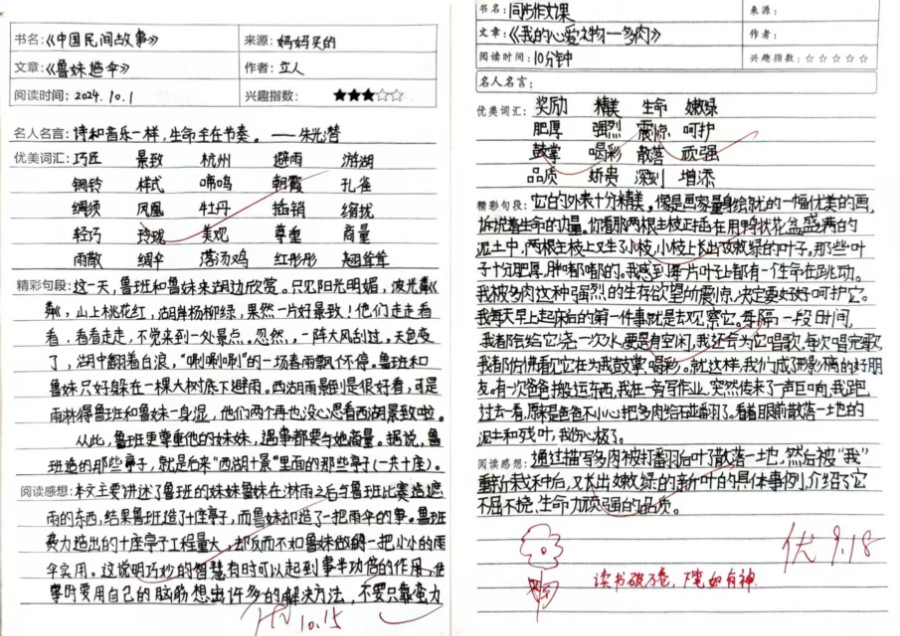 书名:《中国民间故事》 来源:妈妈买的
文章:《鲁妹造伞》 作者:立人
阅读时间:2024.10.1 兴趣指数:★★★☆☆
名人名言:诗和音乐一样,生命全在节奏。——朱光潜
优美词汇:巧匠 景致 杭州 避雨 游湖
铜铃 样式 啼鸣 朝霞 孔雀
绸须 凤凰 牡丹 插销 缩拢
轻巧 玲珑 美观 尊重 商量
雨散 绸伞 落汤鸡 红彤彤 翘耸耸
精彩句段:这一天,鲁班和鲁妹来湖边欣赏。只见阳光明媚,波光粼
粼,山上桃花红,湖岸杨柳绿,果然一片好景致!他们走走看
看,看看走走,不觉来到一处景点。忽然,一阵大风刮过,天色变
了,湖中翻着白浪,“唰唰唰”的一场暴雨飘个不停。鲁班和
鲁妹只好躲在一棵大树底下避雨。西湖雨景倒是很好看,可是
雨淋得鲁班和鲁妹一身湿,他们两个再也没心思看西湖景致啦。
从此,鲁班更尊重他的妹妹,遇事都要与她商量。据说,鲁
班造的那些亭子,就是后来“西湖十景”里面的那些亭子(一共十座)。
阅读感想:本文主要讲述了鲁班的妹妹鲁妹在淋雨之后与鲁班比赛造遮
雨的东西,结果鲁班造了十座亭子,而鲁妹却造了一把雨伞的事。鲁班
费力造出的十座亭子工程量大,却反而不如鲁妹做的一把小小的雨
伞实用。这说明巧妙的智慧有时可以起到事半功倍的作用,
要用自己的脑筋想出许多的解决方法,不要只靠蛮力
10.15
书名:同步作文课 来源:
文章:《我的心爱之物——多肉》 作者:
阅读时间:10分钟 兴趣指数:☆☆☆☆☆
名人名言:
优美词汇:奖励 精美 生命 嫩绿
肥厚 强烈 震惊 呵护
鼓掌 喝彩 散落 顽强
品质 娇贵 深刻 增添
精彩句段:它的外表十分精美,像是画家量身绘就的一幅优美的画,
诉说着生命的力量。你看那两根主枝正插在用鸭状花盆盛满的
泥土中,两根主枝上又生了小枝,小枝上长出改嫩绿的叶子。那些叶
子十分肥厚,胖嘟嘟的。我感到每片叶子上都有一个生命在跳动。
我被多肉这种强烈的生存欲望所震惊,决定要好好呵护它。
我每天早上起床后的第一件事就是去观察它。每隔一段时间,
我都包给它浇一次水,要是有空闲,我还会为它唱歌,每次唱完歌
我都仿佛看见它在为我鼓掌、喝彩。就这样,我们成了形影不离的好朋
友。有一次爸爸搬运东西,我在一旁写作业,突然传来了一声巨响,我跑
过去一看,原来是爸爸不小心把多肉给碰翻了。看着眼前散落一地的
泥土和残叶,我伤心极了。
阅读感想:通过描写多肉被打翻后叶子散落一地,然后被“我”
重新栽种后,又长出嫩绿的新叶的具体事例,介绍了它
不屈不挠,生命力顽强的品质。
优 9.18
读书破万卷,下笔如有神